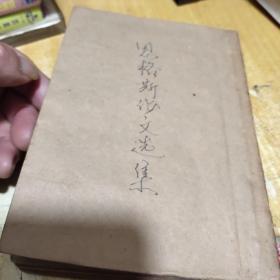 恩格斯论文选集